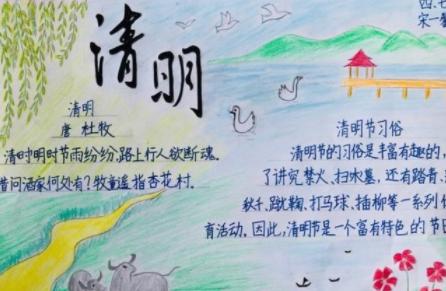 清明
四.七
宋一
清明
唐 杜牧
清时明时节雨纷纷,路上行人欲断魂.
借问酒家何处有?牧童遥指杏花村.
清明节习俗
清明节的习俗是丰富有趣的,
了讲究禁火、扫水墓,还有踏青、
秋千、蹴鞠、打马球、插柳等一系列
育活动.因此,清明节是一个富有特色的节日